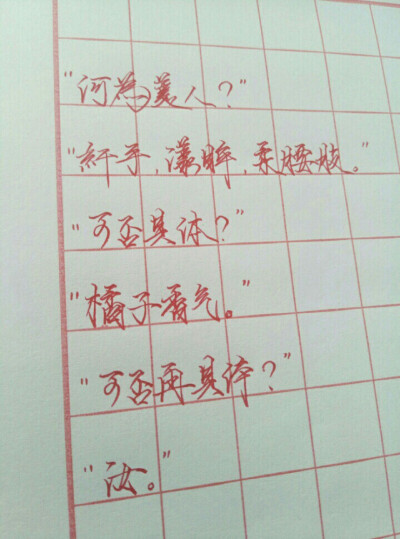 "何為美人?"
"纤手,漾眸,柔腰肢。"
"可否具体?"
"橘子香气。"
"可否再具体?"
"汝。"